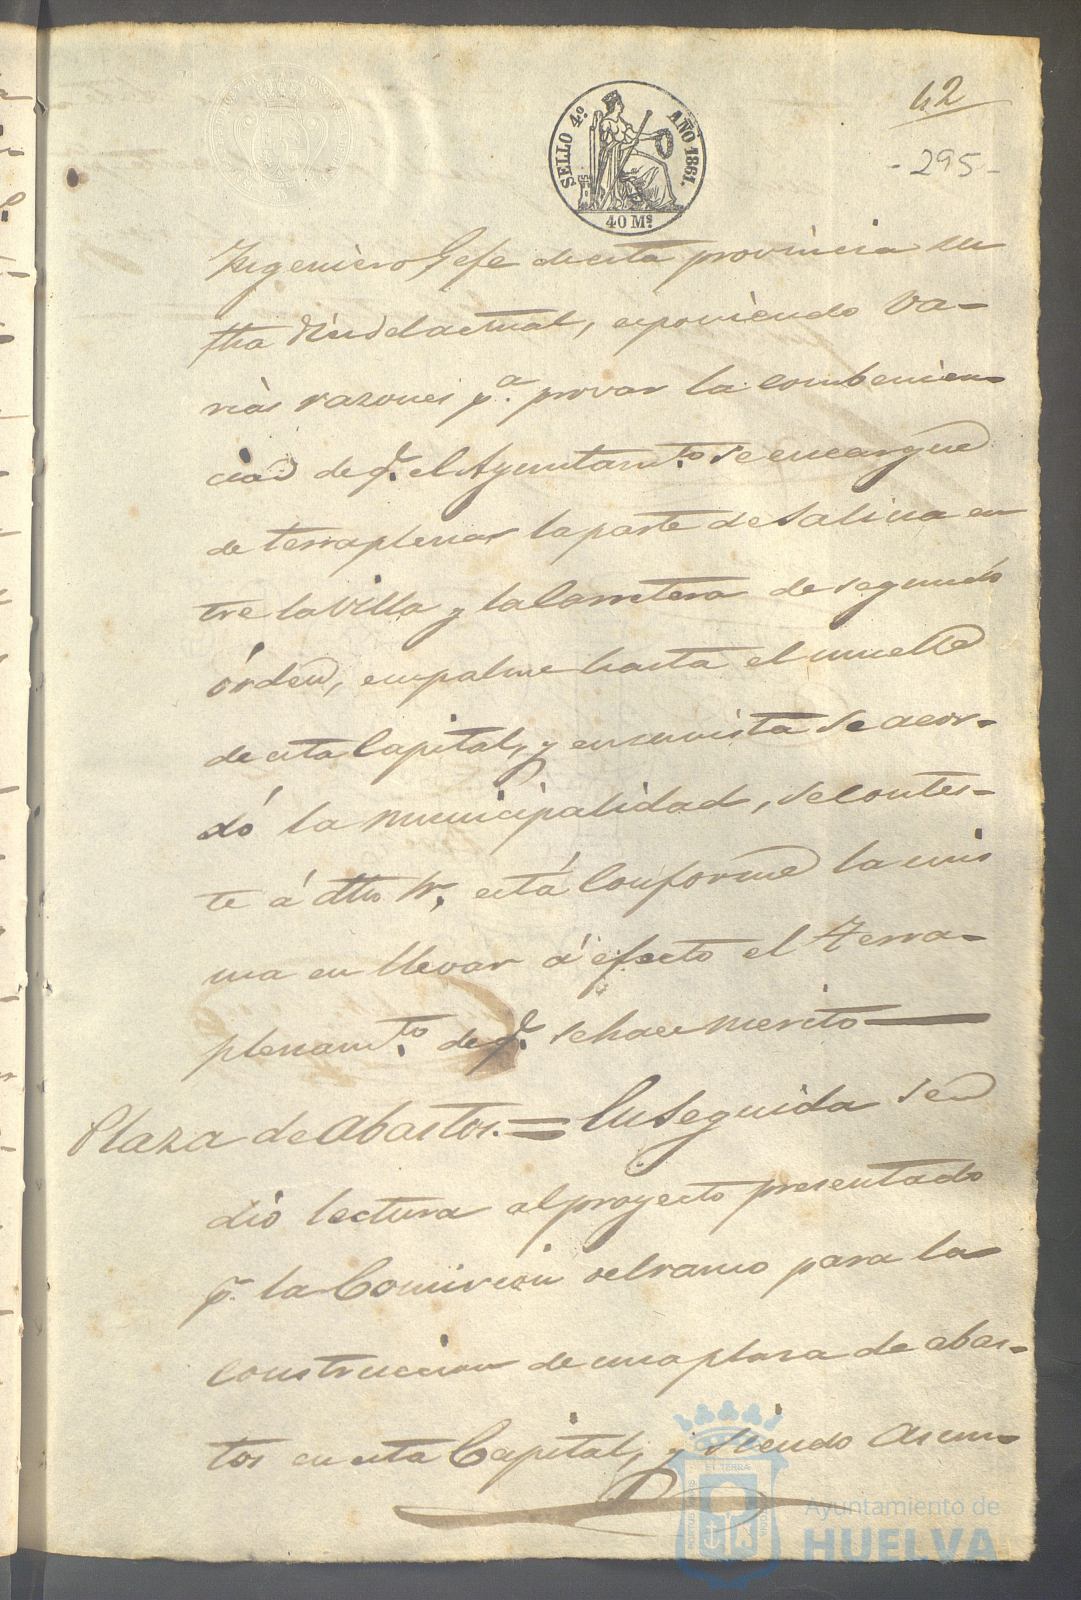 42
- 295 -
SELLO 4º AÑO 1861.
40 Ms.
Ingeniero Gefe de esta provincia su
fha del actual, esponiendo va-
rias razones pª. provar la combenien-
cia de q. el Ayuntamto. se encargue
de terraplenar la parte de Salina en
tre la Villa y la Carretera de segundo
órden, empalme hasta el muelle
de esta Capital, y en su vista se acor-
dó la municipalidad, se contes-
te á dho Sr. está conforme la mis
ma en llevar á efecto el terra-
plenamto. de q. se hace merito
Plaza de Abastos. = En seguida se
dió lectura al proyecto presentado
pr. la Comision del ramo para la
construccion de una plasa de abas-
tos en esta Capital, y siendo asun-
Ayuntamiento de
HUELVA